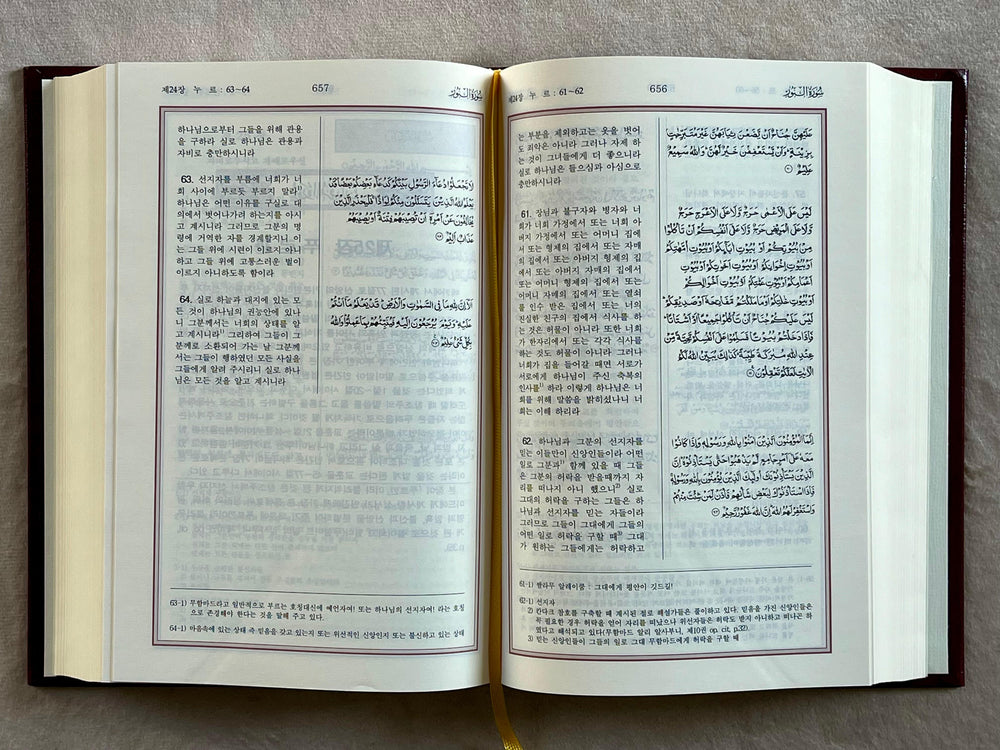 제24장 누 르 : 61~62
656
سُورَةُ النُّورِ
는 부분을 제외하고는 옷을 벗어
도 죄악은 아니라 그러나 자제 하
는 것이 그녀들에게 더 좋으니라
실로 하나님은 들으심과 아심으로
충만하시니라
عَلَيْهِنَّ جُنَاحٌ أَن يَضَعْنَ ثِيَابَهُنَّ غَيْرَ مُتَبَرِّجَٰتٍ
بِزِينَةٍ وَأَن يَسْتَعْفِفْنَ خَيْرٌ لَّهُنَّ وَٱللَّهُ سَمِيعٌ
عَلِيمٌ ٦٠
61. 장님과 불구자와 병자와 너
희가 너희 가정에서 또는 너희 아
버지 가정에서 또는 어머니 집에
서 또는 형제의 집에서 또는 자매
의 집에서 또는 아버지 형제의 집
에서 또는 아버지 자매의 집에서
또는 어머니 형제의 집에서 또는
어머니 자매의 집에서 또는 열쇠
를 인수 받은 집에서 또는 너의
진실한 친구의 집에서 식사를 하
는 것은 허물이 아니라 또한 너희
가 한자리에서 또는 각각 식사를
하는 것도 허물이 아니라 그러나
너희가 집을 들어갈 때면 서로가
서로에게 하나님이 주신 축복의
인사를1) 하라 이렇게 하나님은 너
희를 위해 말씀을 밝히셨나니 너
희는 이해 하리라
لَّيْسَ عَلَى ٱلْأَعْمَىٰ حَرَجٌ وَلَا عَلَى ٱلْأَعْرَجِ حَرَجٌ
وَلَا عَلَى ٱلْمَرِيضِ حَرَجٌ وَلَا عَلَىٰٓ أَنفُسِكُمْ أَن تَأْكُلُوا۟
مِنۢ بُيُوتِكُمْ أَوْ بُيُوتِ ءَابَآئِكُمْ أَوْ بُيُوتِ أُمَّهَٰتِكُمْ
أَوْ بُيُوتِ إِخْوَٰنِكُمْ أَوْ بُيُوتِ أَخَوَٰتِكُمْ أَوْ بُيُوتِ
أَعْمَٰمِكُمْ أَوْ بُيُوتِ عَمَّٰتِكُمْ أَوْ بُيُوتِ أَخْوَٰلِكُمْ
أَوْ بُيُوتِ خَٰلَٰتِكُمْ أَوْ مَا مَلَكْتُم مَّفَاتِحَهُۥٓ أَوْ صَدِيقِكُمْ
لَيْسَ عَلَيْكُمْ جُنَاحٌ أَن تَأْكُلُوا۟ جَمِيعًا أَوْ أَشْتَاتًا
فَإِذَا دَخَلْتُم بُيُوتًا فَسَلِّمُوا۟ عَلَىٰٓ أَنفُسِكُمْ تَحِيَّةً مِّنْ
عِندِ ٱللَّهِ مُبَٰرَكَةً طَيِّبَةً كَذَٰلِكَ يُبَيِّنُ ٱللَّهُ لَكُمُ
ٱلْءَايَٰتِ لَعَلَّكُمْ تَعْقِلُونَ ٦١
62. 하나님과 그분의 선지자를
믿는 이들만이 신앙인들이라 어떤
일로 그분과1) 함께 있을 때 그들
은 그분의 허락을 받을때까지 자
리를 떠나지 아니 했으니2) 실로
그대의 허락을 구하는 그들은 하
나님과 선지자를 믿는 자들이라
그러므로 그들이 그대에게 그들의
어떤 일로 허락을 구할 때3) 그대
가 원하는 그들에게는 허락하고
إِنَّمَا ٱلْمُؤْمِنُونَ ٱلَّذِينَ ءَامَنُوا۟ بِٱللَّهِ وَرَسُولِهِۦ وَإِذَا كَانُوا۟
مَعَهُۥ عَلَىٰٓ أَمْرٍ جَامِعٍ لَّمْ يَذْهَبُوا۟ حَتَّىٰ يَسْتَـْٔذِنُوهُ إِنَّ
ٱلَّذِينَ يَسْتَـْٔذِنُونَكَ أُو۟لَٰٓئِكَ ٱلَّذِينَ يُؤْمِنُونَ بِٱللَّهِ وَرَسُولِهِۦ
فَإِذَا ٱسْتَـْٔذَنُوكَ لِبَعْضِ شَأْنِهِمْ فَأْذَن لِّمَن شِئْتَ مِنْهُمْ
وَٱسْتَغْفِرْ لَهُمُ ٱللَّهَ إِنَّ ٱللَّهَ غَفُورٌ رَّحِيمٌ ٦٢
61-1) 쌀라무 알레이쿰 : 그대에게 평안이 깃드길!
62-1) 선지자
2) 칸다크 참호를 구축할 때 계시된 절로 해설가들은 풀이하고 있다. 믿음을 가진 신앙인들은
꼭 필요한 경우 허락을 얻어 자리를 떠났으나 위선자들은 허락도 받지 아니하고 떠나곤 하
였다고 해석되고 있다(무함마드 알리 알사부니, 제10권 op. cit, p.32).
3) 믿는 신앙인들이 그들의 일로 그대 무함마드에게 허락을 구할 때
제24장 누 르 : 63~64
657
سُورَةُ النُّورِ
하나님으로부터 그들을 위해 관용
을 구하라 실로 하나님은 관용과
자비로 충만하시니라
63. 선지자를 부름에 너희가 너
희 사이에 부르듯 부르지 말라1)
하나님은 어떤 이유를 구실로 대
의에서 벗어나가려 하는지를 아시
고 계시니라 그러므로 그분의 명
령에 거역한 자를 경계할지니 이
는 그들 위에 시련이 이르지 아니
하고 그들 위에 고통스러운 벌이
이르지 아니하도록 함이라
لَّا تَجْعَلُوا۟ دُعَآءَ ٱلرَّسُولِ بَيْنَكُمْ كَدُعَآءِ بَعْضِكُم بَعْضًا قَدْ
يَعْلَمُ ٱللَّهُ ٱلَّذِينَ يَتَسَلَّلُونَ مِنكُمْ لِوَاذًا فَلْيَحْذَرِ ٱلَّذِينَ
يُخَالِفُونَ عَنْ أَمْرِهِۦٓ أَن تُصِيبَهُمْ فِتْنَةٌ أَوْ يُصِيبَهُمْ
عَذَابٌ أَلِيمٌ ٦٣
64. 실로 하늘과 대지에 있는 모
든 것이 하나님의 권능안에 있나
니 그분께서는 너희의 상태를 알
고 계시니라1) 그리하여 그들이 그
분께로 소환되어 가는 날 그분께
서는 그들이 행하였던 모든 사실을
그들에게 알려 주시리니 실로 하나
님은 모든 것을 알고 계시니라
أَلَآ إِنَّ لِلَّهِ مَا فِى ٱلسَّمَٰوَٰتِ وَٱلْأَرْضِ قَدْ يَعْلَمُ مَآ أَنتُمْ
عَلَيْهِ وَيَوْمَ يُرْجَعُونَ إِلَيْهِ فَيُنَبِّئُهُم بِمَا عَمِلُوا۟ وَٱللَّهُ
بِكُلِّ شَىْءٍ عَلِيمٌۢ ٦٤
63-1) 무함마드라고 일반적으로 부르는 호칭대신에 예언자여! 또는 하나님의 선지자여! 라는 호칭
으로 존경해야 한다는 것을 말해 주고 있다.
64-1) 마음속에 있는 상태 즉 믿음을 갖고 있는지 또는 위선적인 신앙인지 또는 불신하고 있는 상태